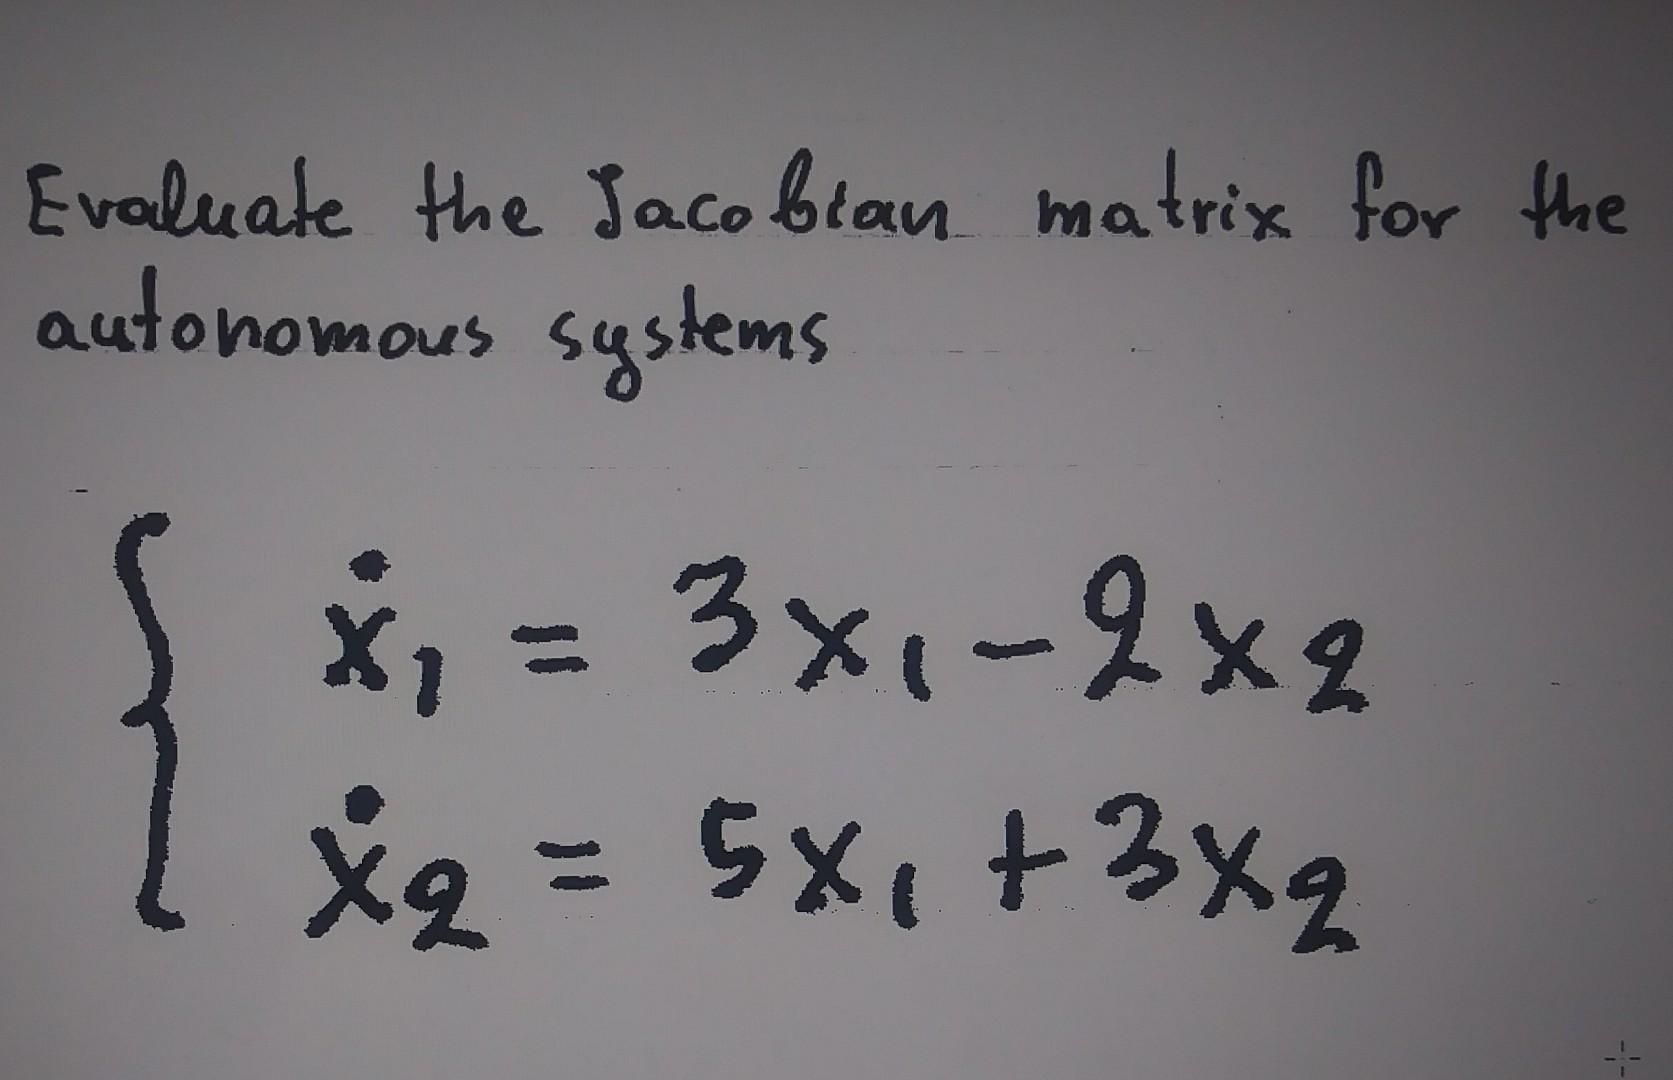 Evaluate the Jacobian matrix for the
autonomous systems
ẋ₁ = 3x₁ - 2x₂
ẋ₂ = 5x₁ + 3x₂